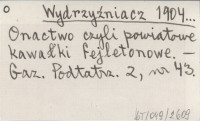 Wydrzyźniacz 1904...
Onactwo czyli powiatowe
kawałki fejletonowe. –
Gaz. Podtatrz. 2, nr 43.